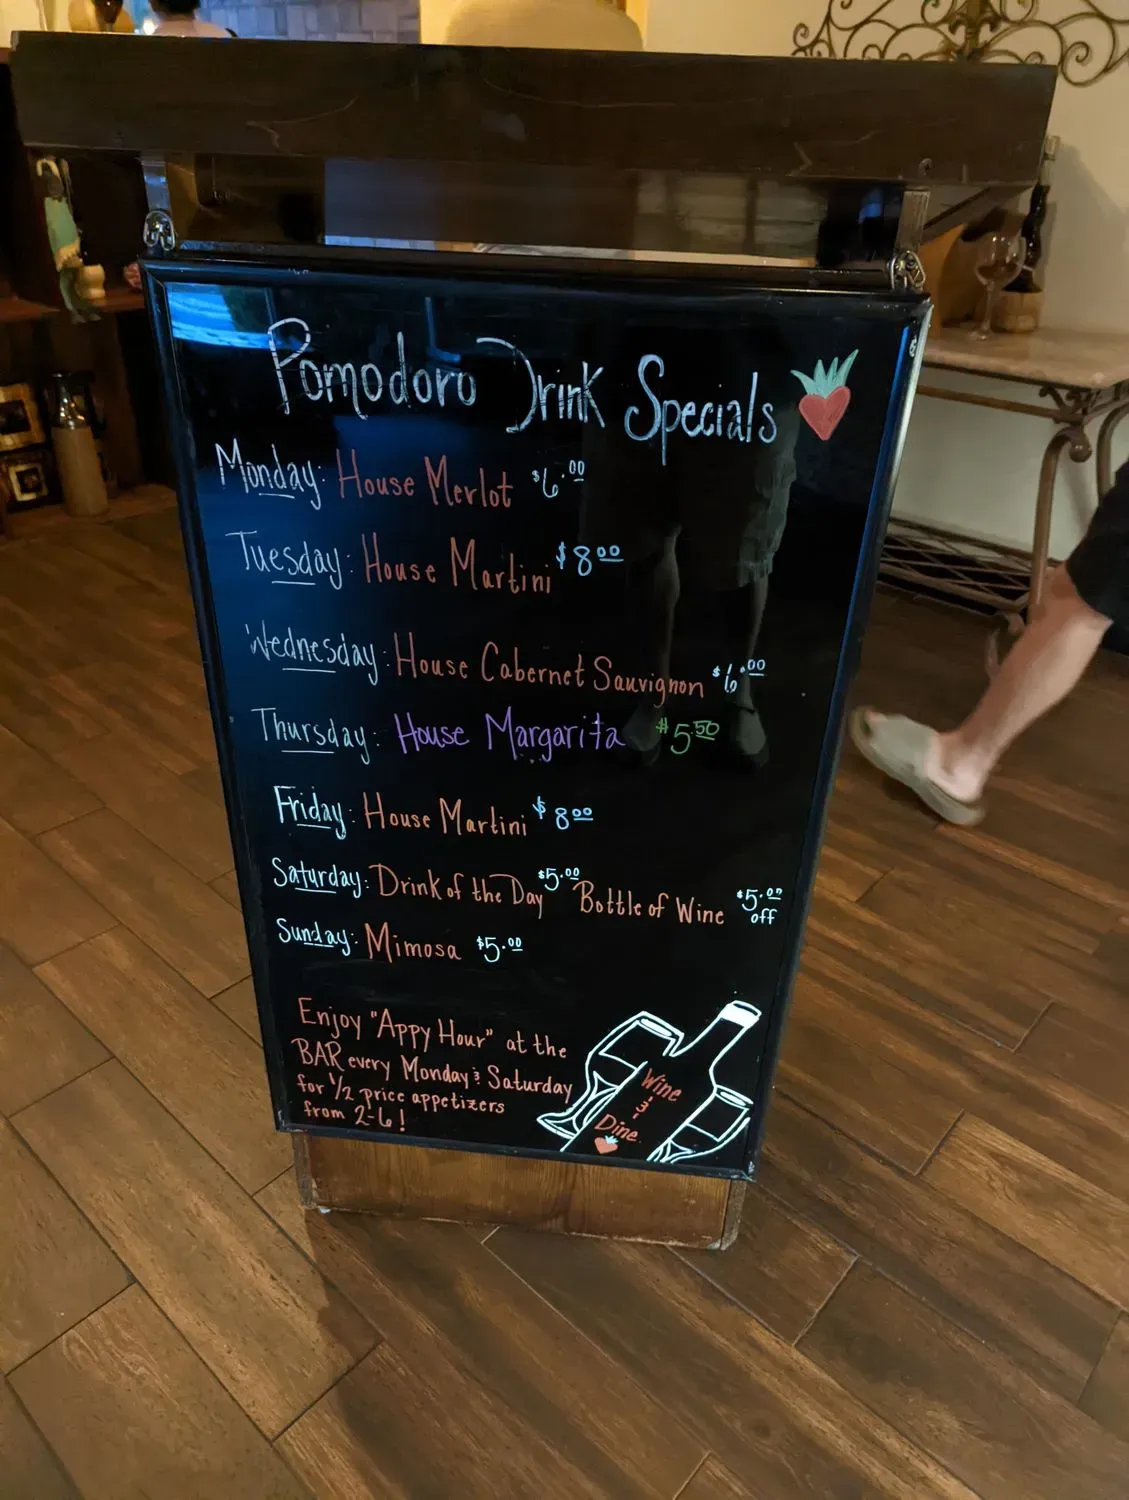 Pomodoro Drink Specials
Monday: House Merlot $6.00
Tuesday: House Martini $8.00
Wednesday: House Cabernet Sauvignon $6.00
Thursday: House Margarita $5.50
Friday: House Martini $8.00
Saturday: Drink of the Day $5.00 Bottle of Wine $5.00 off
Sunday: Mimosa $5.00
Enjoy "Appy Hour" at the
BAR every Monday & Saturday
for 1/2 price appetizers
from 2-6!
Wine
&
Dine